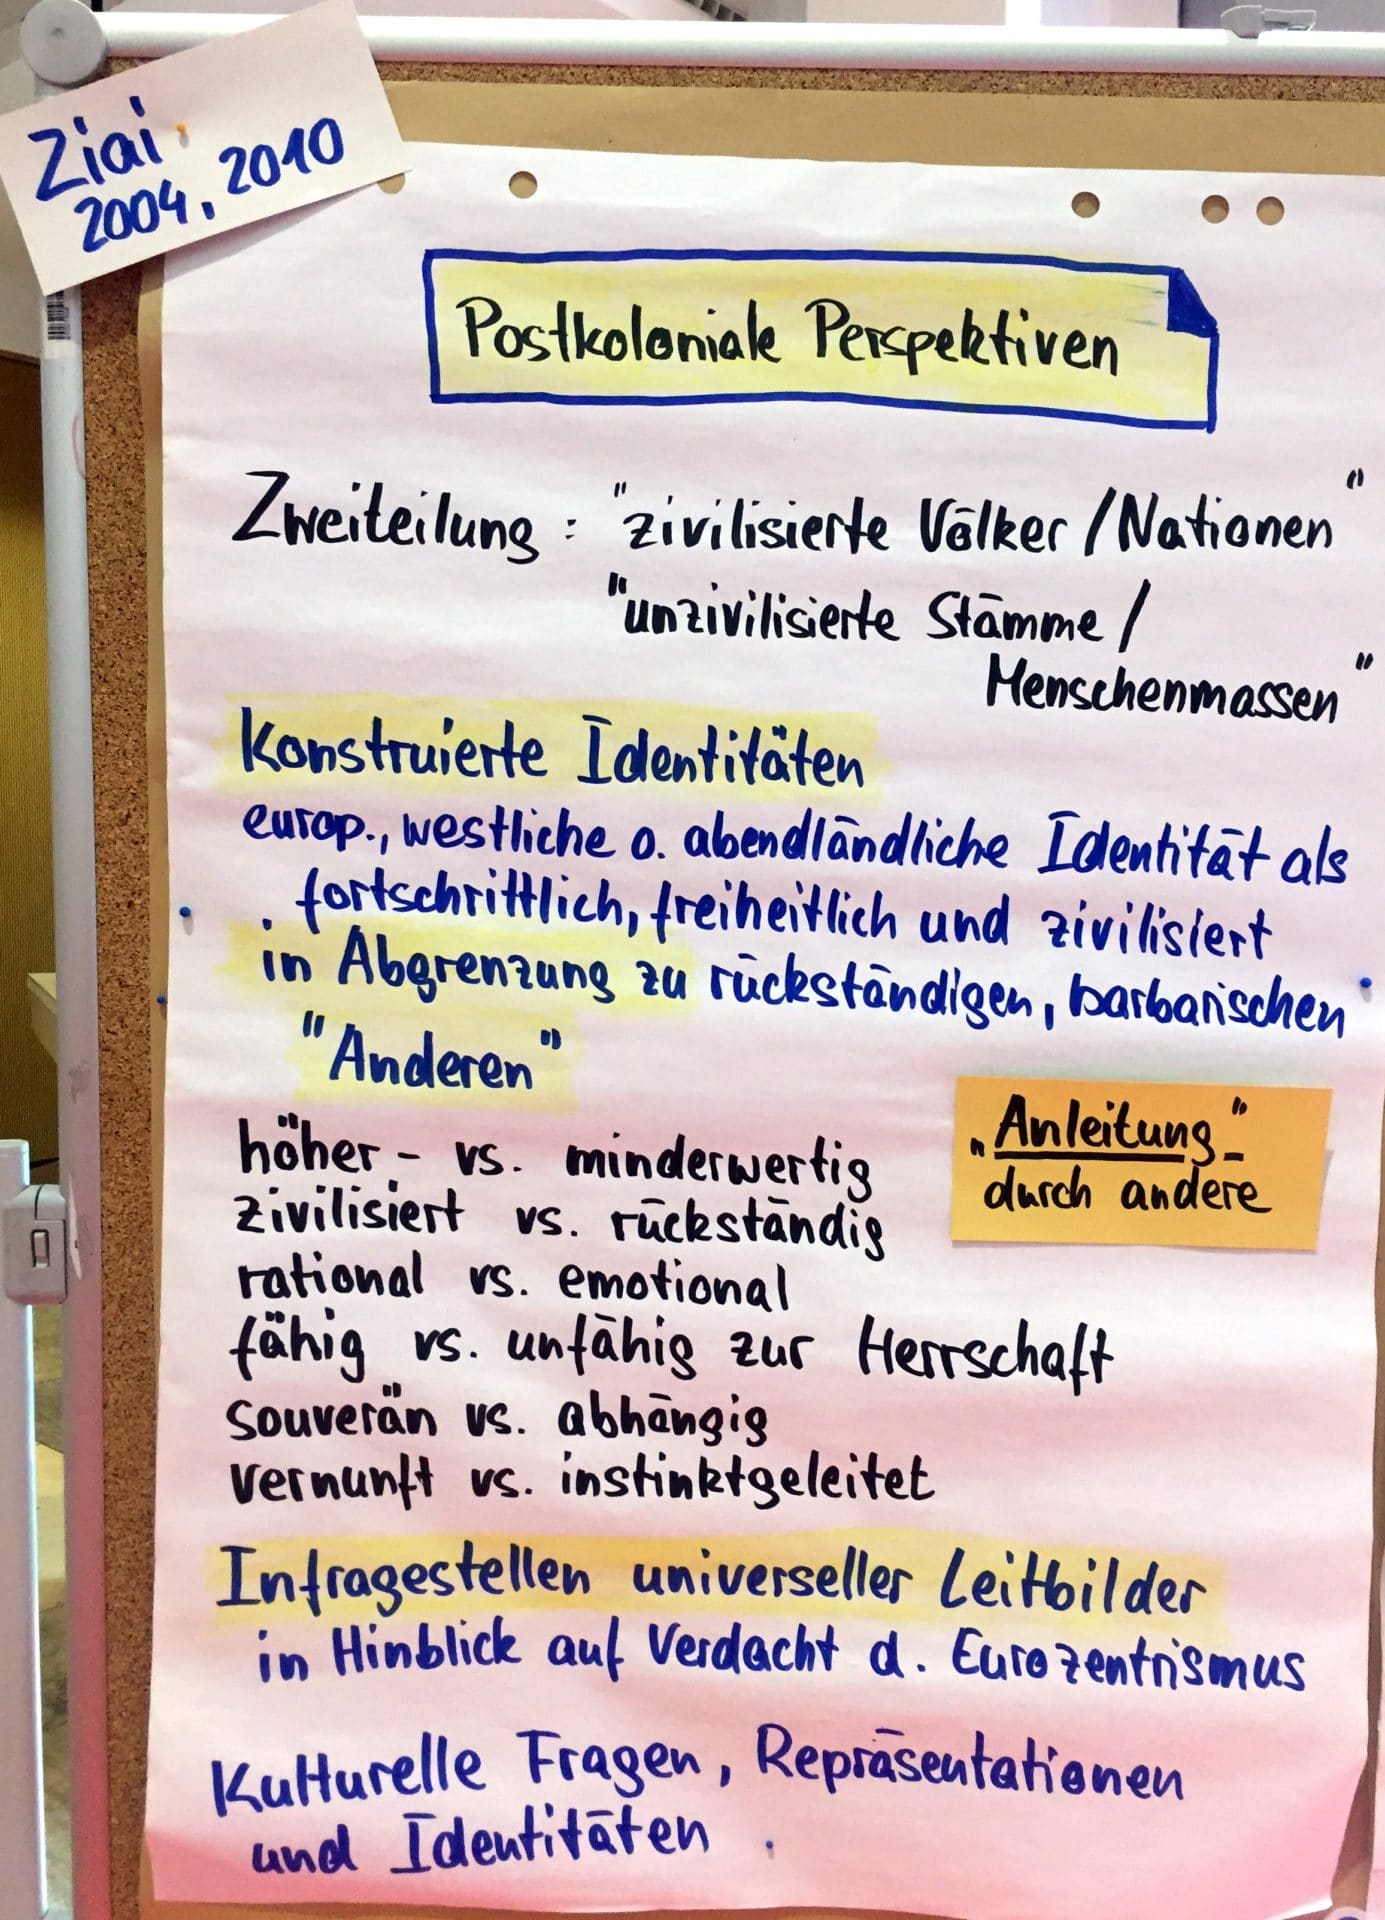 Ziai
2004, 2010
Postkoloniale Perspektiven
Zweiteilung : "zivilisierte Völker/Nationen"
"unzivilisierte Stämme/
Menschenmassen"
Konstruierte Identitäten
europ., westliche o. abendländliche Identität als
fortschrittlich, freiheitlich und zivilisiert
in Abgrenzung zu rückständigen, barbarischen
"Anderen"
„Anleitung"
durch andere
höher- vs. minderwertig
zivilisiert vs. rückständig
rational vs. emotional
fähig vs. unfähig zur Herrschaft
souverän vs. abhängig
vernunft vs. instinktgeleitet
Infragestellen universeller Leitbilder
in Hinblick auf Verdacht d. Eurozentrismus
Kulturelle Fragen, Repräsentationen
und Identitäten